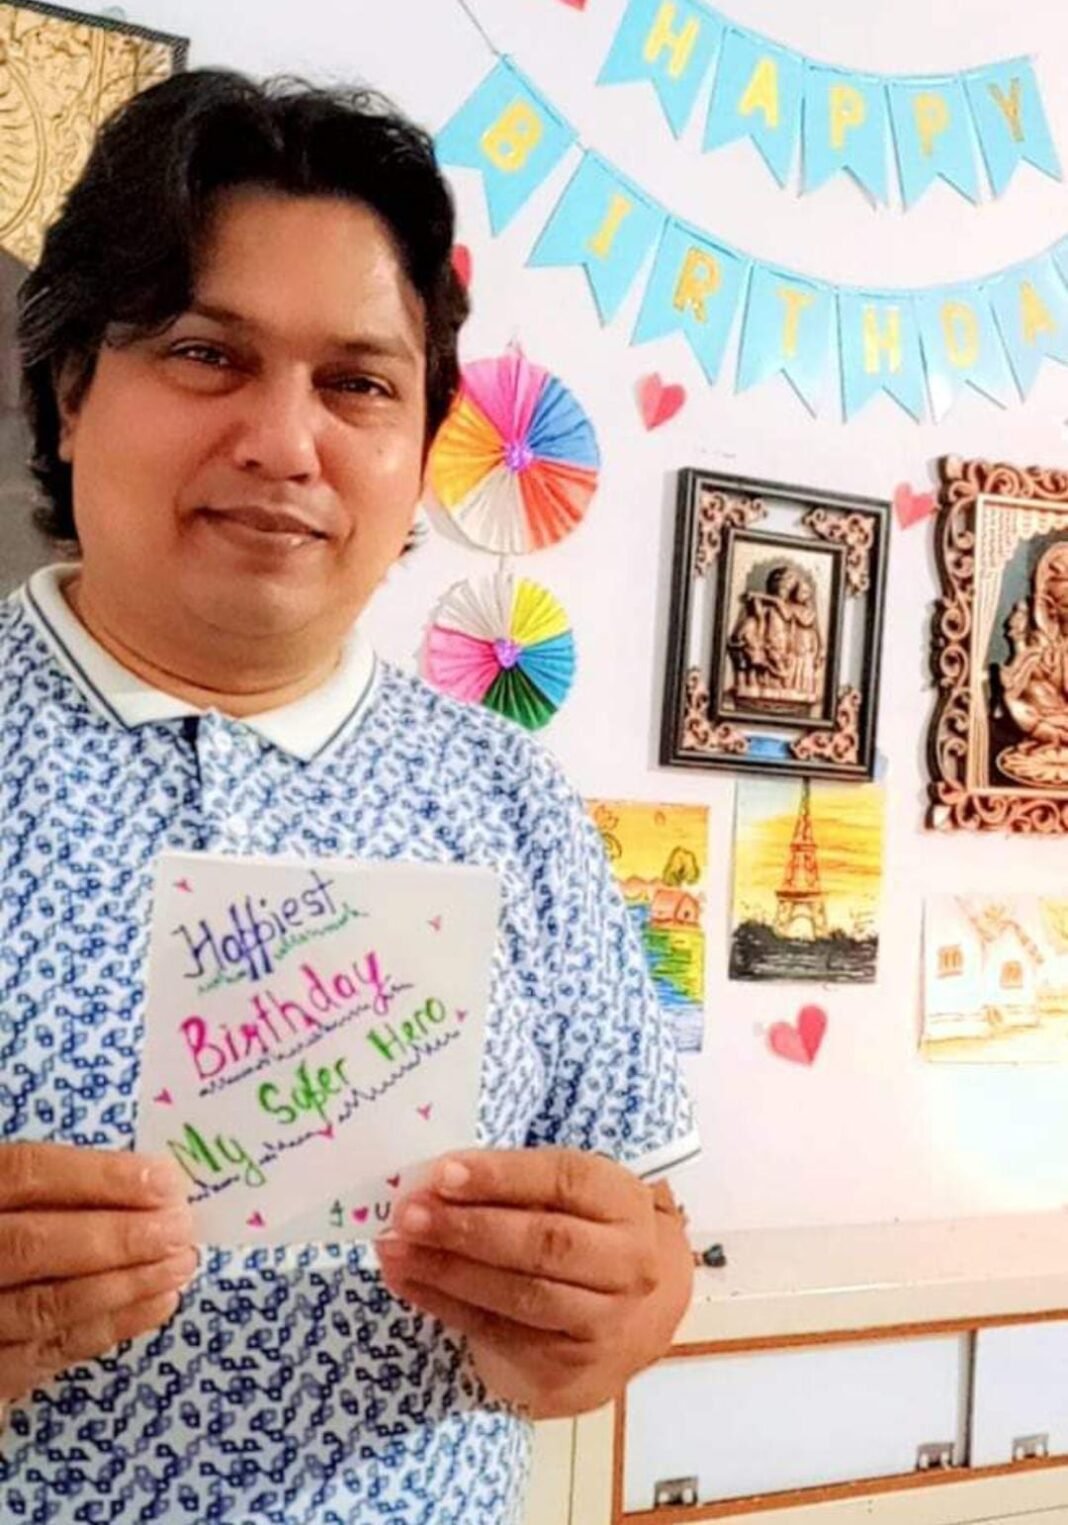 HAPPY
BIRTHDA
Happiest
Birthday
My Super Hero
I ♥ U